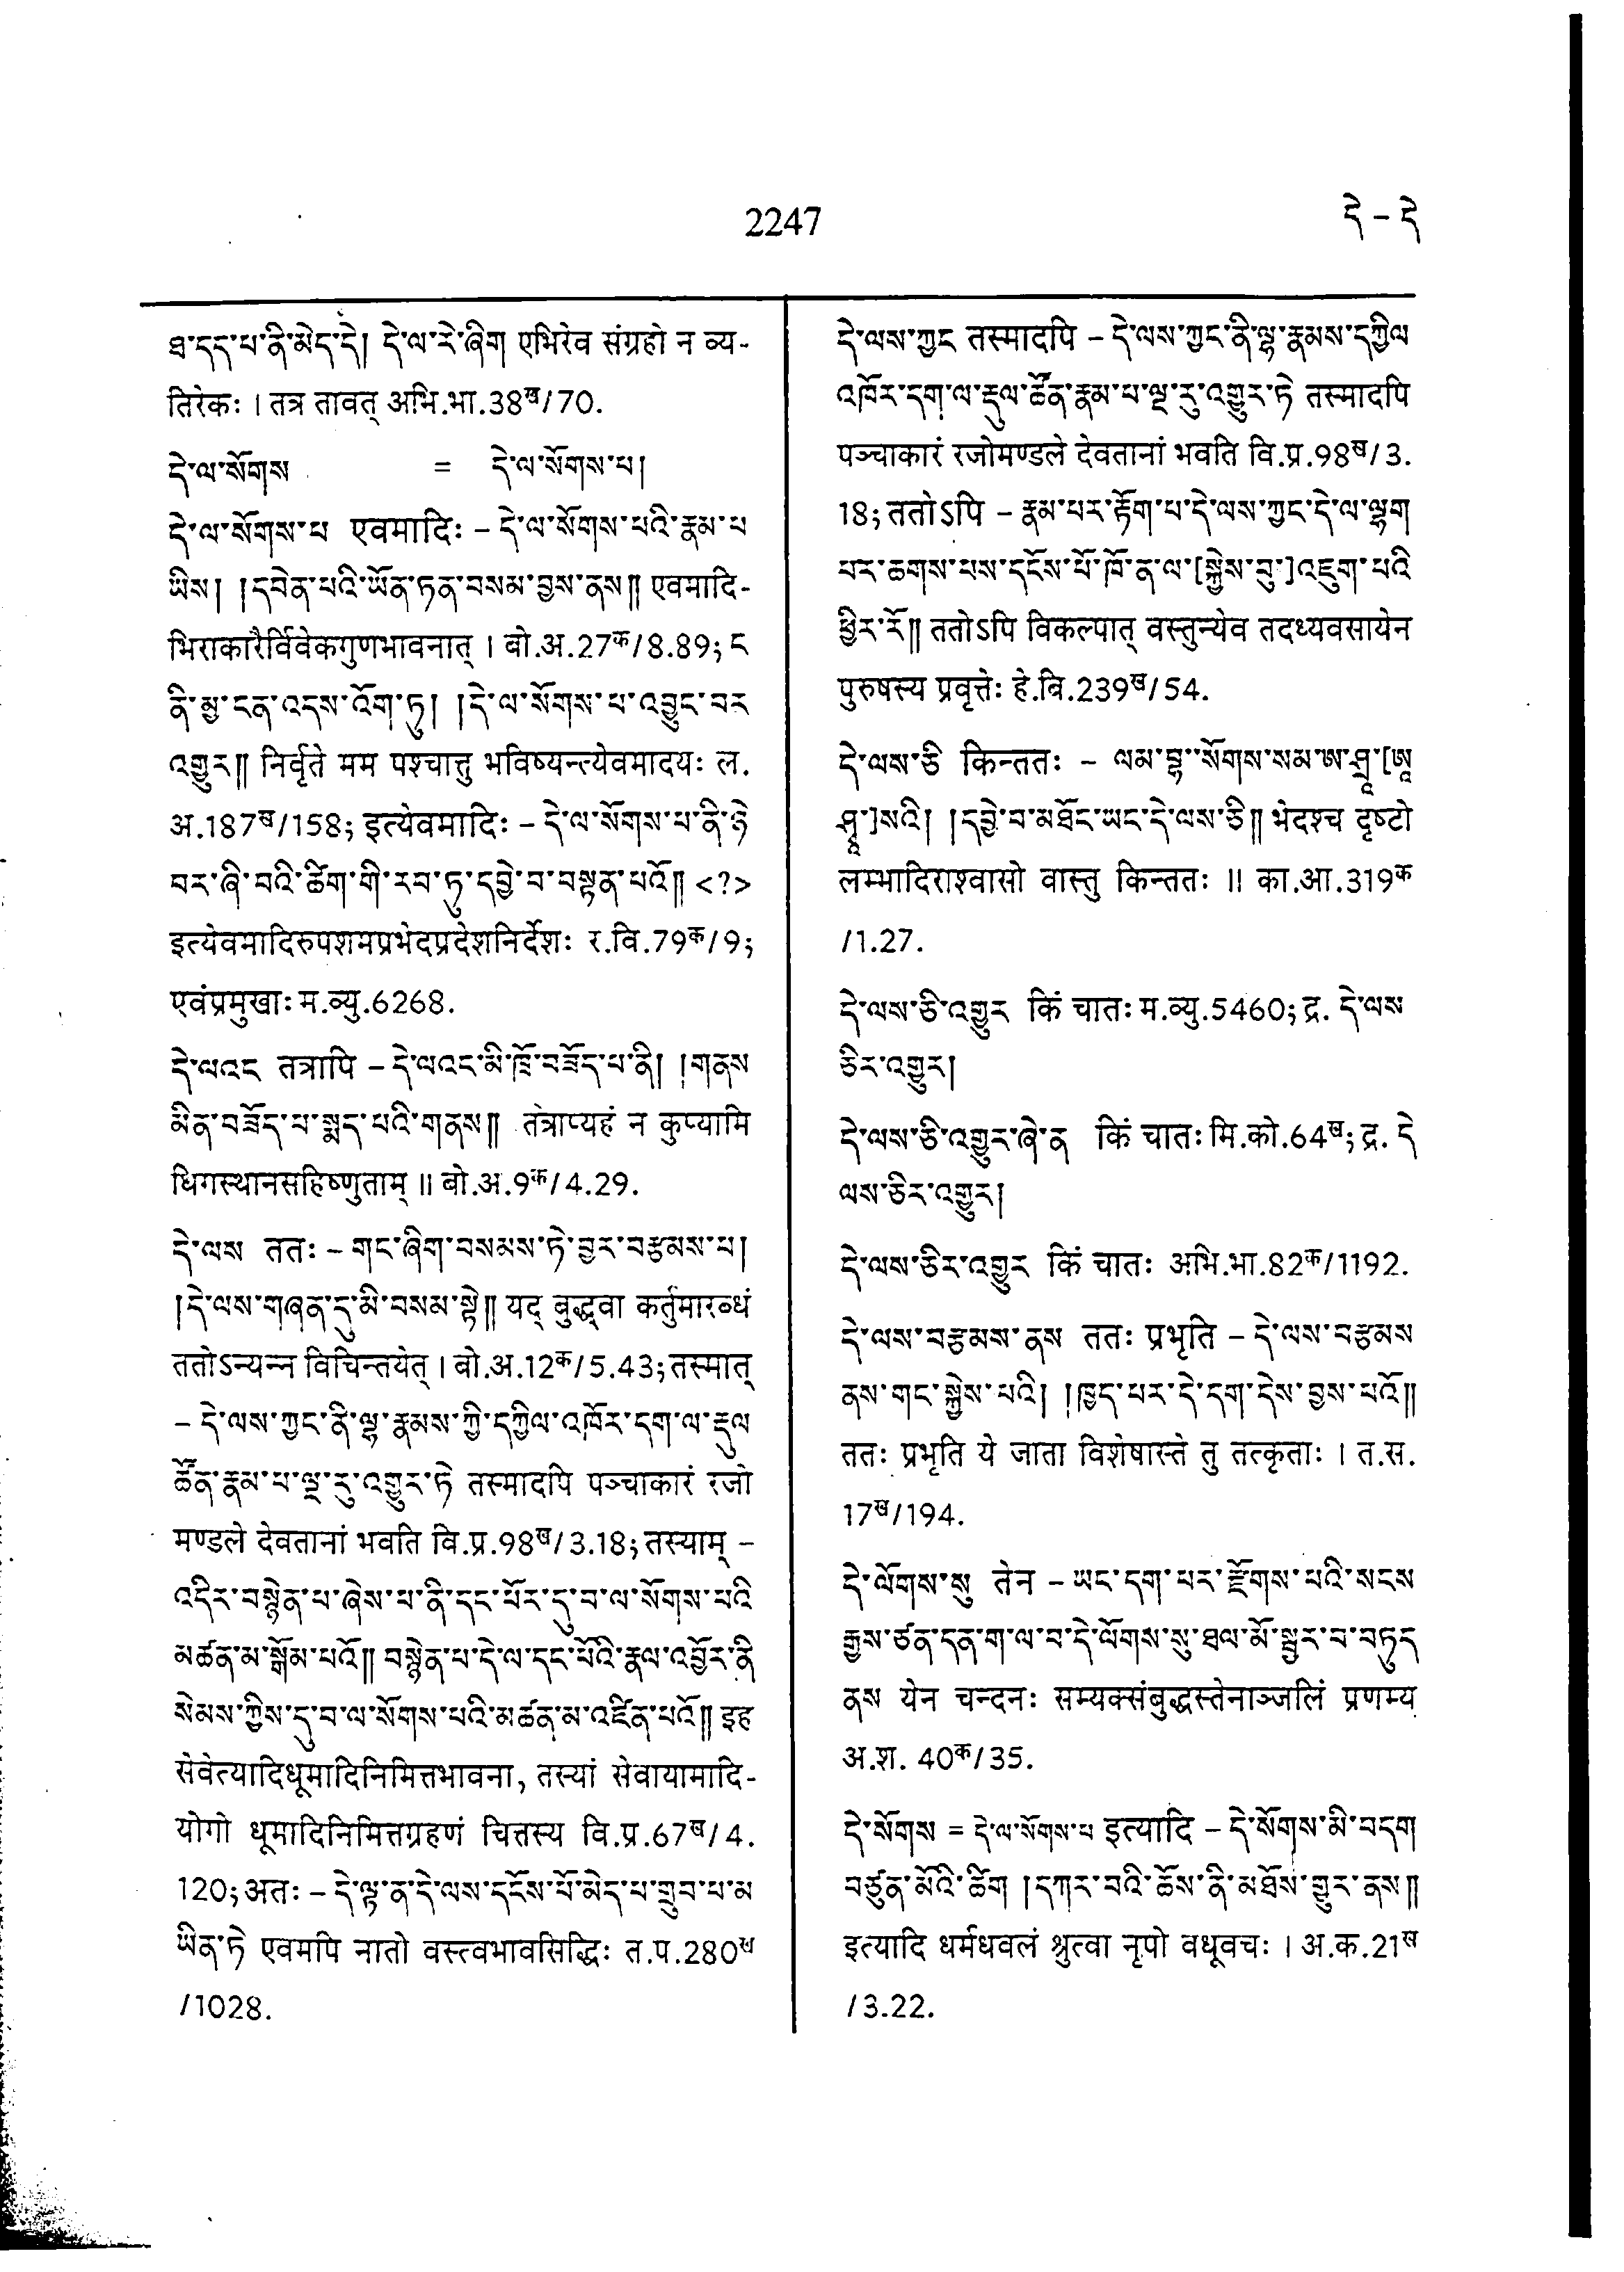 2247
དེ – དེ
ཐ་དད་པ་ནི་མེད་དེ། དེ་ལ་རེ་ཞིག एभिरेव संग्रहो न व्य-
तिरेकः । तत्र तावत् अभि.भा.38ख/70.
དེ་ལ་སོགས = དེ་ལ་སོགས་པ།
དེ་ལ་སོགས་པ एवमादिः – དེ་ལ་སོགས་པའི་རྣམ་པ
ཡིས། །དབེན་པའི་ཡོན་ཏན་བསམ་བྱས་ནས༎ एवमादि-
भिराकारैर्विवेकगुणभावनात् । बो.अ.27क/8.89; ང
ནི་མྱ་ངན་འདས་འོག་ཏུ། །དེ་ལ་སོགས་པ་འབྱུང་བར
འགྱུར༎ निर्वृते मम पश्चात्तु भविष्यन्त्येवमादयः ल.
अ.187ख/158; इत्येवमादिः – དེ་ལ་སོགས་པ་ནི་ཉེ
བར་ཞི་བའི་ཚིག་གི་རབ་ཏུ་དབྱེ་བ་བསྟན་པའོ༎ <?>
इत्येवमादिरुपशमप्रभेदप्रदेशनिर्देशः र.वि.79क/9;
एवंप्रमुखाः म.व्यु.6268.
དེ་ལའང तत्रापि – དེ་ལའང་མི་ཁྲོ་བཟོད་པ་ནི། །གནས
མིན་བཟོད་པ་སྨད་པའི་གནས༎ तत्राप्यहं न कुप्यामि
धिगस्थानसहिष्णुताम् ॥ बो.अ.9क/4.29.
དེ་ལས ततः – གང་ཞིག་བསམས་ཏེ་བྱར་བརྩམས་པ།
།དེ་ལས་གཞན་དུ་མི་བསམ་སྟེ༎ यद् बुद्ध्वा कर्तुमारब्धं
ततोऽन्यन्न विचिन्तयेत् । बो.अ.12क/5.43; तस्मात्
– དེ་ལས་ཀྱང་ནི་ལྷ་རྣམས་ཀྱི་དཀྱིལ་འཁོར་དག་ལ་རྡུལ
ཚོན་རྣམ་པ་ལྔ་རུ་འགྱུར་ཏེ तस्मादपि पञ्चाकारं रजो
मण्डले देवतानां भवति वि.प्र.98ख/3.18; तस्याम् –
འདིར་བསྙེན་པ་ཞེས་པ་ནི་དང་པོར་དུ་བ་ལ་སོགས་པའི
མཚན་མ་སྒོམ་པའོ༎ བསྙེན་པ་དེ་ལ་དང་པོའི་རྣལ་འབྱོར་ནི
སེམས་ཀྱིས་དུ་བ་ལ་སོགས་པའི་མཚན་མ་འཛིན་པའོ༎ इह
सेवेत्यादिधूमादिनिमित्तभावना, तस्यां सेवायामादि-
योगो धूमादिनिमित्तग्रहणं चित्तस्य वि.प्र.67ख/4.
120; अतः – དེ་ལྟ་ན་དེ་ལས་དངོས་པོ་མེད་པ་གྲུབ་པ་མ
ཡིན་ཏེ एवमपि नातो वस्त्वभावसिद्धिः त.प.280ख
/1028.
དེ་ལས་ཀྱང तस्मादपि – དེ་ལས་ཀྱང་ནི་ལྷ་རྣམས་དཀྱིལ
འཁོར་དག་ལ་རྡུལ་ཚོན་རྣམ་པ་ལྔ་རུ་འགྱུར་ཏེ तस्मादपि
पञ्चाकारं रजोमण्डले देवतानां भवति वि.प्र.98ख/3.
18; ततोऽपि – རྣམ་པར་རྟོག་པ་དེ་ལས་ཀྱང་དེ་ལ་ལྷག
པར་ཆགས་པས་དངོས་པོ་ཁོ་ན་ལ་[སྐྱེས་བུ་]འཇུག་པའི
ཕྱིར་རོ༎ ततोऽपि विकल्पात् वस्तुन्येव तदध्यवसायेन
पुरुषस्य प्रवृत्तेः हे.बि.239ख/54.
དེ་ལས་ཅི किन्ततः – ལམ་བྷ་སོགས་སམ་ཨ་ཤྭཱ་[ཨཱ
ཤྭཱ་]སའི། །དབྱེ་བ་མཐོང་ཡང་དེ་ལས་ཅི༎ भेदश्च दृष्टो
लम्भादिराश्वासो वास्तु किन्ततः ॥ का.आ.319क
/1.27.
དེ་ལས་ཅི་འགྱུར किं चातः म.व्यु.5460; द्र. དེ་ལས
ཅིར་འགྱུར།
དེ་ལས་ཅི་འགྱུར་ཞེ་ན किं चातः मि.को.64ख; द्र. དེ
ལས་ཅིར་འགྱུར།
དེ་ལས་ཅིར་འགྱུར किं चातः अभि.भा.82क/1192.
དེ་ལས་བརྩམས་ནས ततः प्रभृति – དེ་ལས་བརྩམས
ནས་གང་སྐྱེས་པའི། །ཁྱད་པར་དེ་དག་དེས་བྱས་པའོ༎
ततः प्रभृति ये जाता विशेषास्ते तु तत्कृताः । त.स.
17ख/194.
དེ་ལོགས་སུ तेन – ཡང་དག་པར་རྫོགས་པའི་སངས
རྒྱས་ཙན་དན་ག་ལ་བ་དེ་ལོགས་སུ་ཐལ་མོ་སྦྱར་བ་བཏུད
ནས येन चन्दनः सम्यक्संबुद्धस्तेनाञ्जलिं प्रणम्य
अ.श. 40क/35.
དེ་སོགས = དེ་ལ་སོགས་པ इत्यादि – དེ་སོགས་མི་བདག
བཙུན་མོའི་ཚིག །དཀར་བའི་ཆོས་ནི་མཐོས་གྱུར་ནས༎
इत्यादि धर्मधवलं श्रुत्वा नृपो वधूवचः । अ.क.21ख
/3.22.